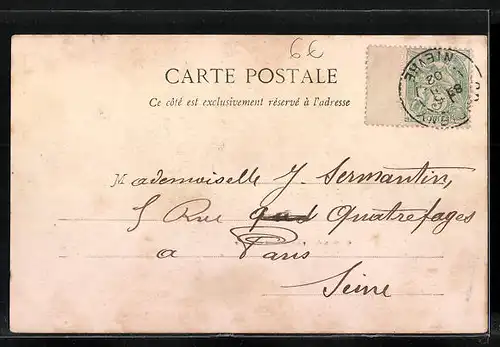 6€
CARTE POSTALE
Ce côté est exclusivement réservé à l'adresse
Mademoiselle J. Sermantin,
5 Rue Quatrefages
a Paris
Seine
NIEVRE
02